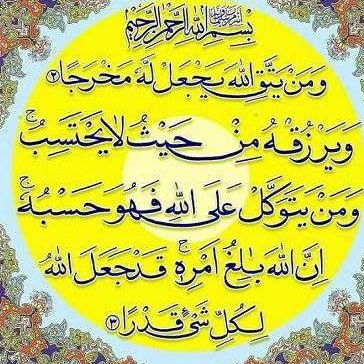 بِسْمِ اللهِ الرَّحْمٰنِ الرَّحِيْمِ
وَمَنْ يَتَّقِ اللهَ يَجْعَلْ لَّهٗ مَخْرَجًا ﴿٢﴾
وَيَرْزُقْهُ مِنْ حَيْثُ لَا يَحْتَسِبُ ۚ
وَمَنْ يَتَوَكَّلْ عَلَى اللهِ فَهُوَ حَسْبُهٗ ۚ
اِنَّ اللهَ بَالِغُ اَمْرِهٖ ۚ قَدْ جَعَلَ اللهُ
لِكُلِّ شَیْءٍ قَدْرًا ﴿٣﴾